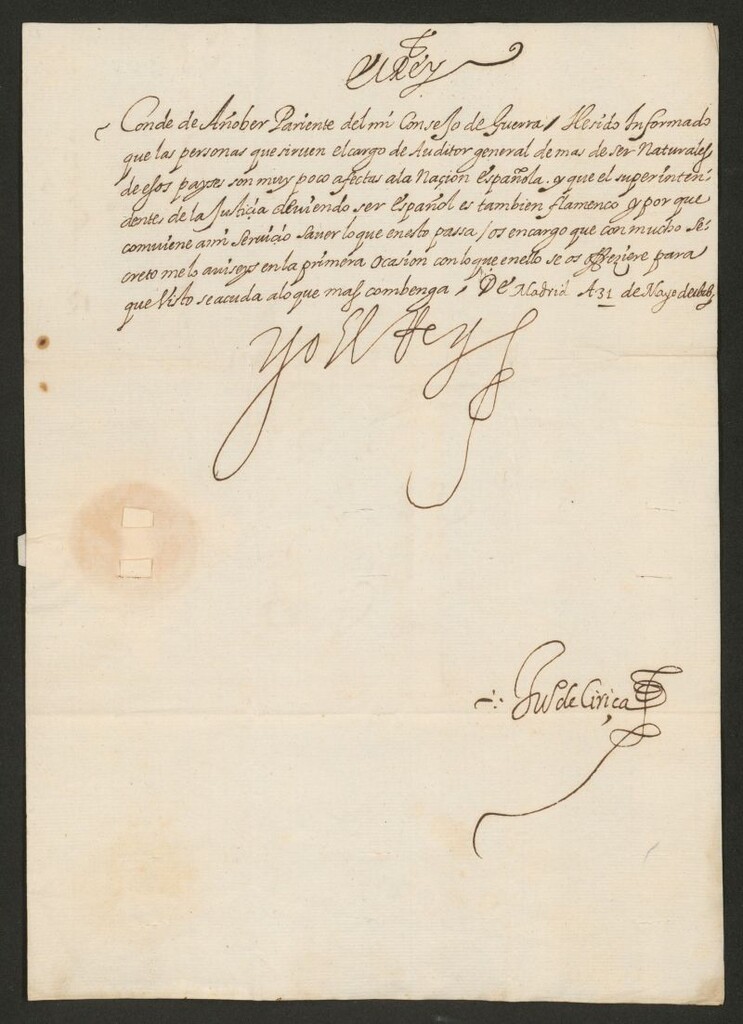 El Rey
Conde de Añober Pariente del mi Consejo de Guerra / He sido Informado
que las personas que siruen el cargo de Auditor general de mas de ser Naturales
de esos payses son muy poco afectas a la Naçion española. y que el superinten-
dentes de la Justiçia deuiendo ser español es tambien flamenco y por que
comuiene a mi seruicio sauer lo que en esto passa / os encargo que con mucho se-
creto me lo auiseys en la primera ocasion con lo que en ello se os offreziere para
que Visto se acuda a lo que mas combenga / De Madrid A 31 de Mayo de
yo El Rey
Juº de Ciriça